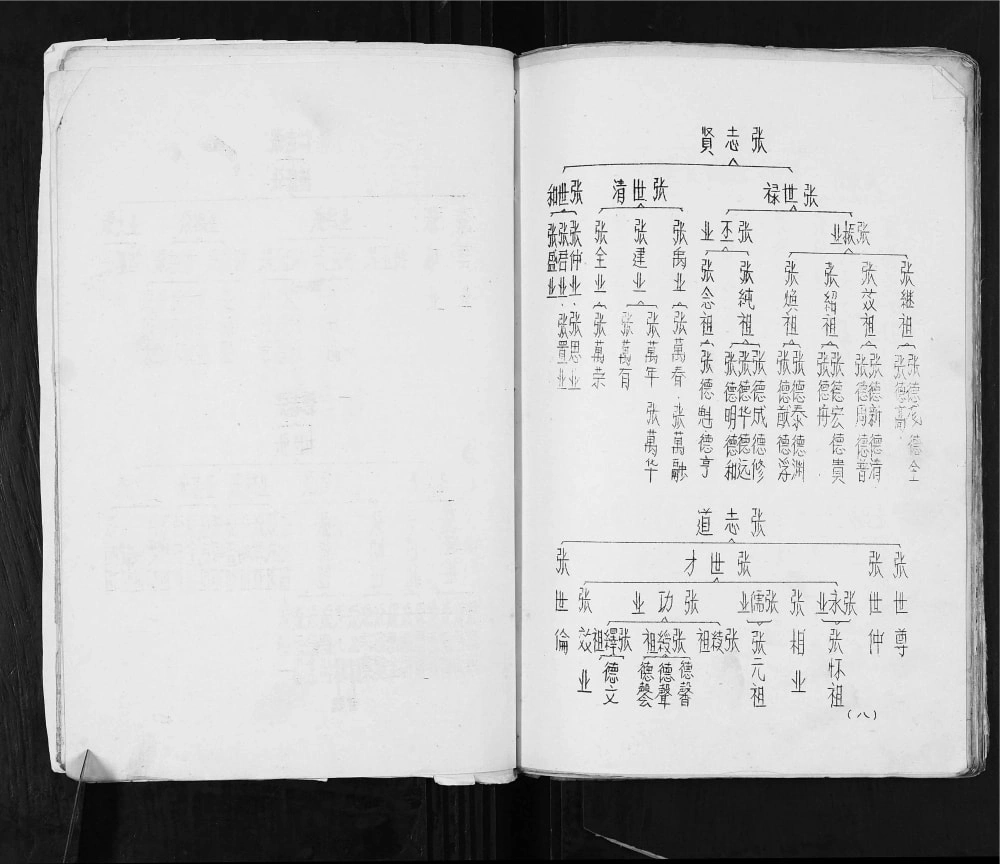 张志賢
张世禄
张世清
张世和
张振业
张丕业
张禹业
张建业
张全业
张仲业
张君业
张盛业
张继祖
张效祖
张紹祖
张焕祖
张純祖
张念祖
张萬春
张萬融
张萬年
张萬华
张萬有
张萬荣
张思业
张置业
德全
张德高
张德新德清
张德周德普
张德宏德貴
张德舟
张德泰德渊
张德猷德浮
张德成德修
张德华德远
张德明德和
张德魁德亨
张志道
张世尊
张世仲
张世才
张世倫
张永业
张相业
张儒业
张功业
张效业
张怀祖
张元祖
张绶祖
张绥祖
张繹祖
德馨
德聲
德文
（八）